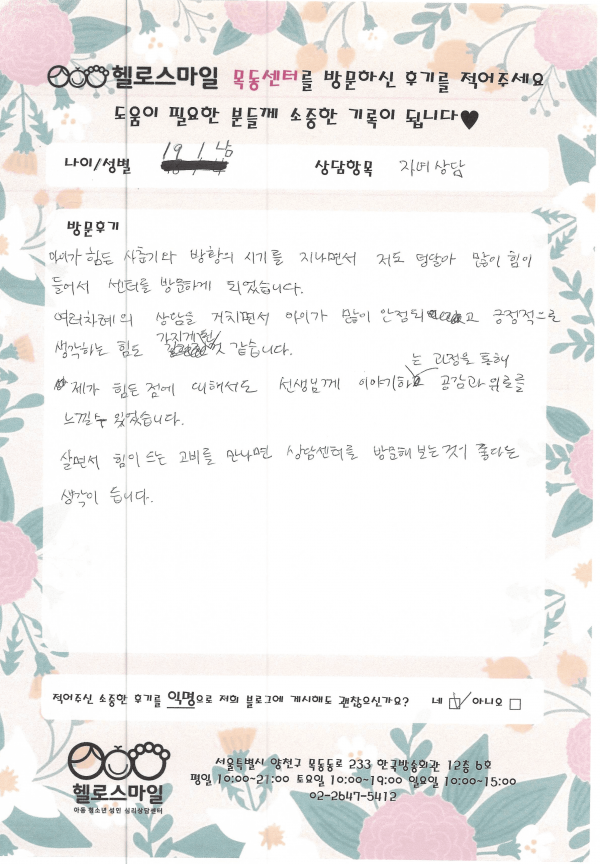 헬로스마일 목동센터를 방문하신 후기를 적어주세요
도움이 필요한 분들께 소중한 기록이 됩니다♥
나이/성별 19 / 남 상담항목 자녀상담
방문후기
아이가 힘든 사춘기와 방황의 시기를 지나면서 저도 덩달아 많이 힘이
들어서 센터를 방문하게 되었습니다.
여러차례의 상담을 거치면서 아이가 많이 안정되고 긍정적으로
생각하는 힘도 가지게 된 것 같습니다.
제가 힘든 점에 대해서도 선생님께 이야기하는 과정을 통해 공감과 위로를
느낄 수 있었습니다.
살면서 힘이 드는 고비를 만나면 상담센터를 방문해 보는 것이 좋다는
생각이 듭니다.
적어주신 소중한 후기를 익명으로 저희 블로그에 게시해도 괜찮으신가요? 네 ☑ 아니오 □
헬로스마일
아동 청소년 성인 심리상담센터
서울특별시 양천구 목동동로 233 한국방송회관 12층 6호
평일 10:00~21:00 토요일 10:00~19:00 일요일 10:00~15:00
02-2647-5412